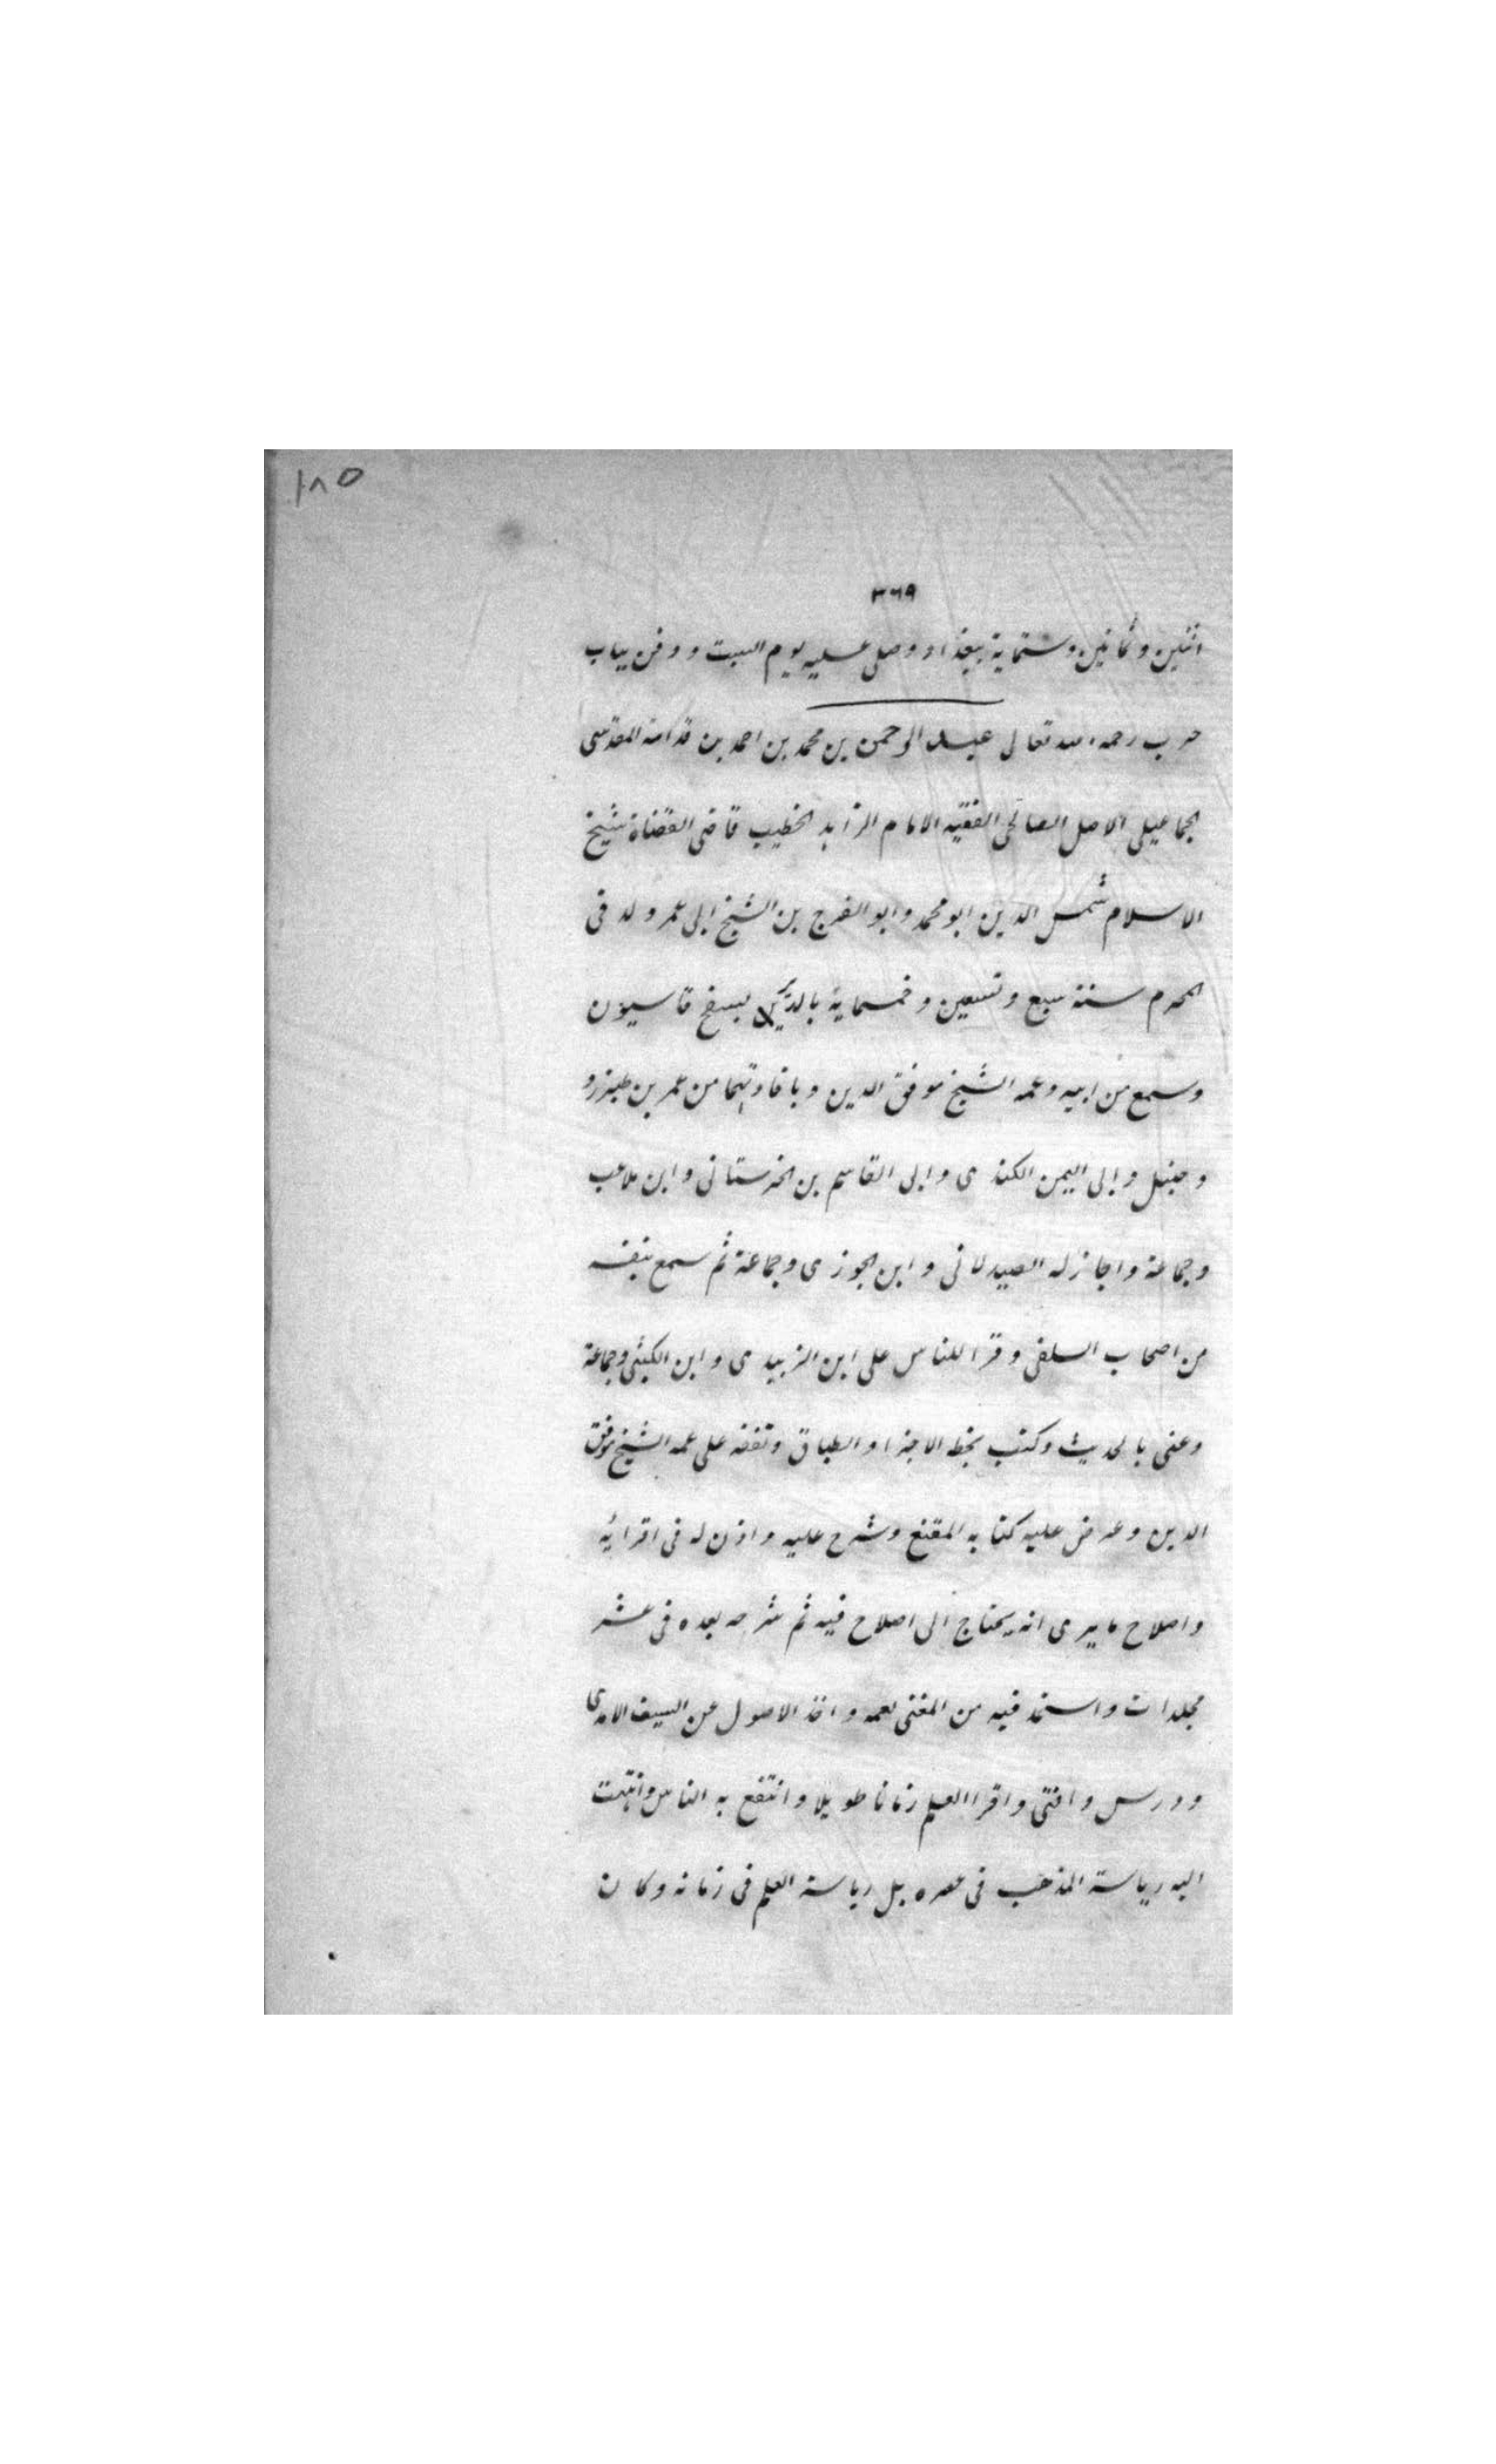 ١٨٥
٣٦٩
اثنين وثمانين وستماية ببغداد وصلى عليه يوم السبت ودفن بباب
حرب رحمه الله تعالى عبد الرحمن بن محمد بن احمد بن قدامة المقدسى
الجماعيلى الاصل الصالحى الفقيه الامام الزاهد الخطيب قاضى القضاة شيخ
الاسلام شمس الدين ابو محمد وابو الفرج بن الشيخ ابى عمر ولد فى
المحرم سنة سبع وتسعين وخمسماية بالدير بسفح قاسيون
وسمع من ابيه وعمه الشيخ موفق الدين وبافادتهما من عمر بن طبرزد
وحنبل وابى اليمن الكندى وابى القاسم بن الحرستانى وابن ملاعب
وجماعة واجاز له الصيدلانى وابن الجوزى وجماعة ثم سمع بنفسه
من اصحاب السلفى وقرا للناس على ابن الزبيدى وابن وجماعة
وعنى بالحديث وكتب بخطه الاجزا والطباق وتفقه على عمه الشيخ موفق
الدين وعرض عليه كتابه المقنع وشرح عليه واذن له فى اقرائه
واصلاح ما يرى انه يحتاج الى اصلاح فيه ثم شرحه بعده فى عشر
مجلدات واستمد فيه من المغنى لعمه واخذ الاصول عن السيف الامدى
ودرس وافتى واقرا العلم زمانا طويلا وانتفع به الناس وانتهت
اليه رياسة المذهب فى عصره بل رياسة العلم فى زمانه وكان